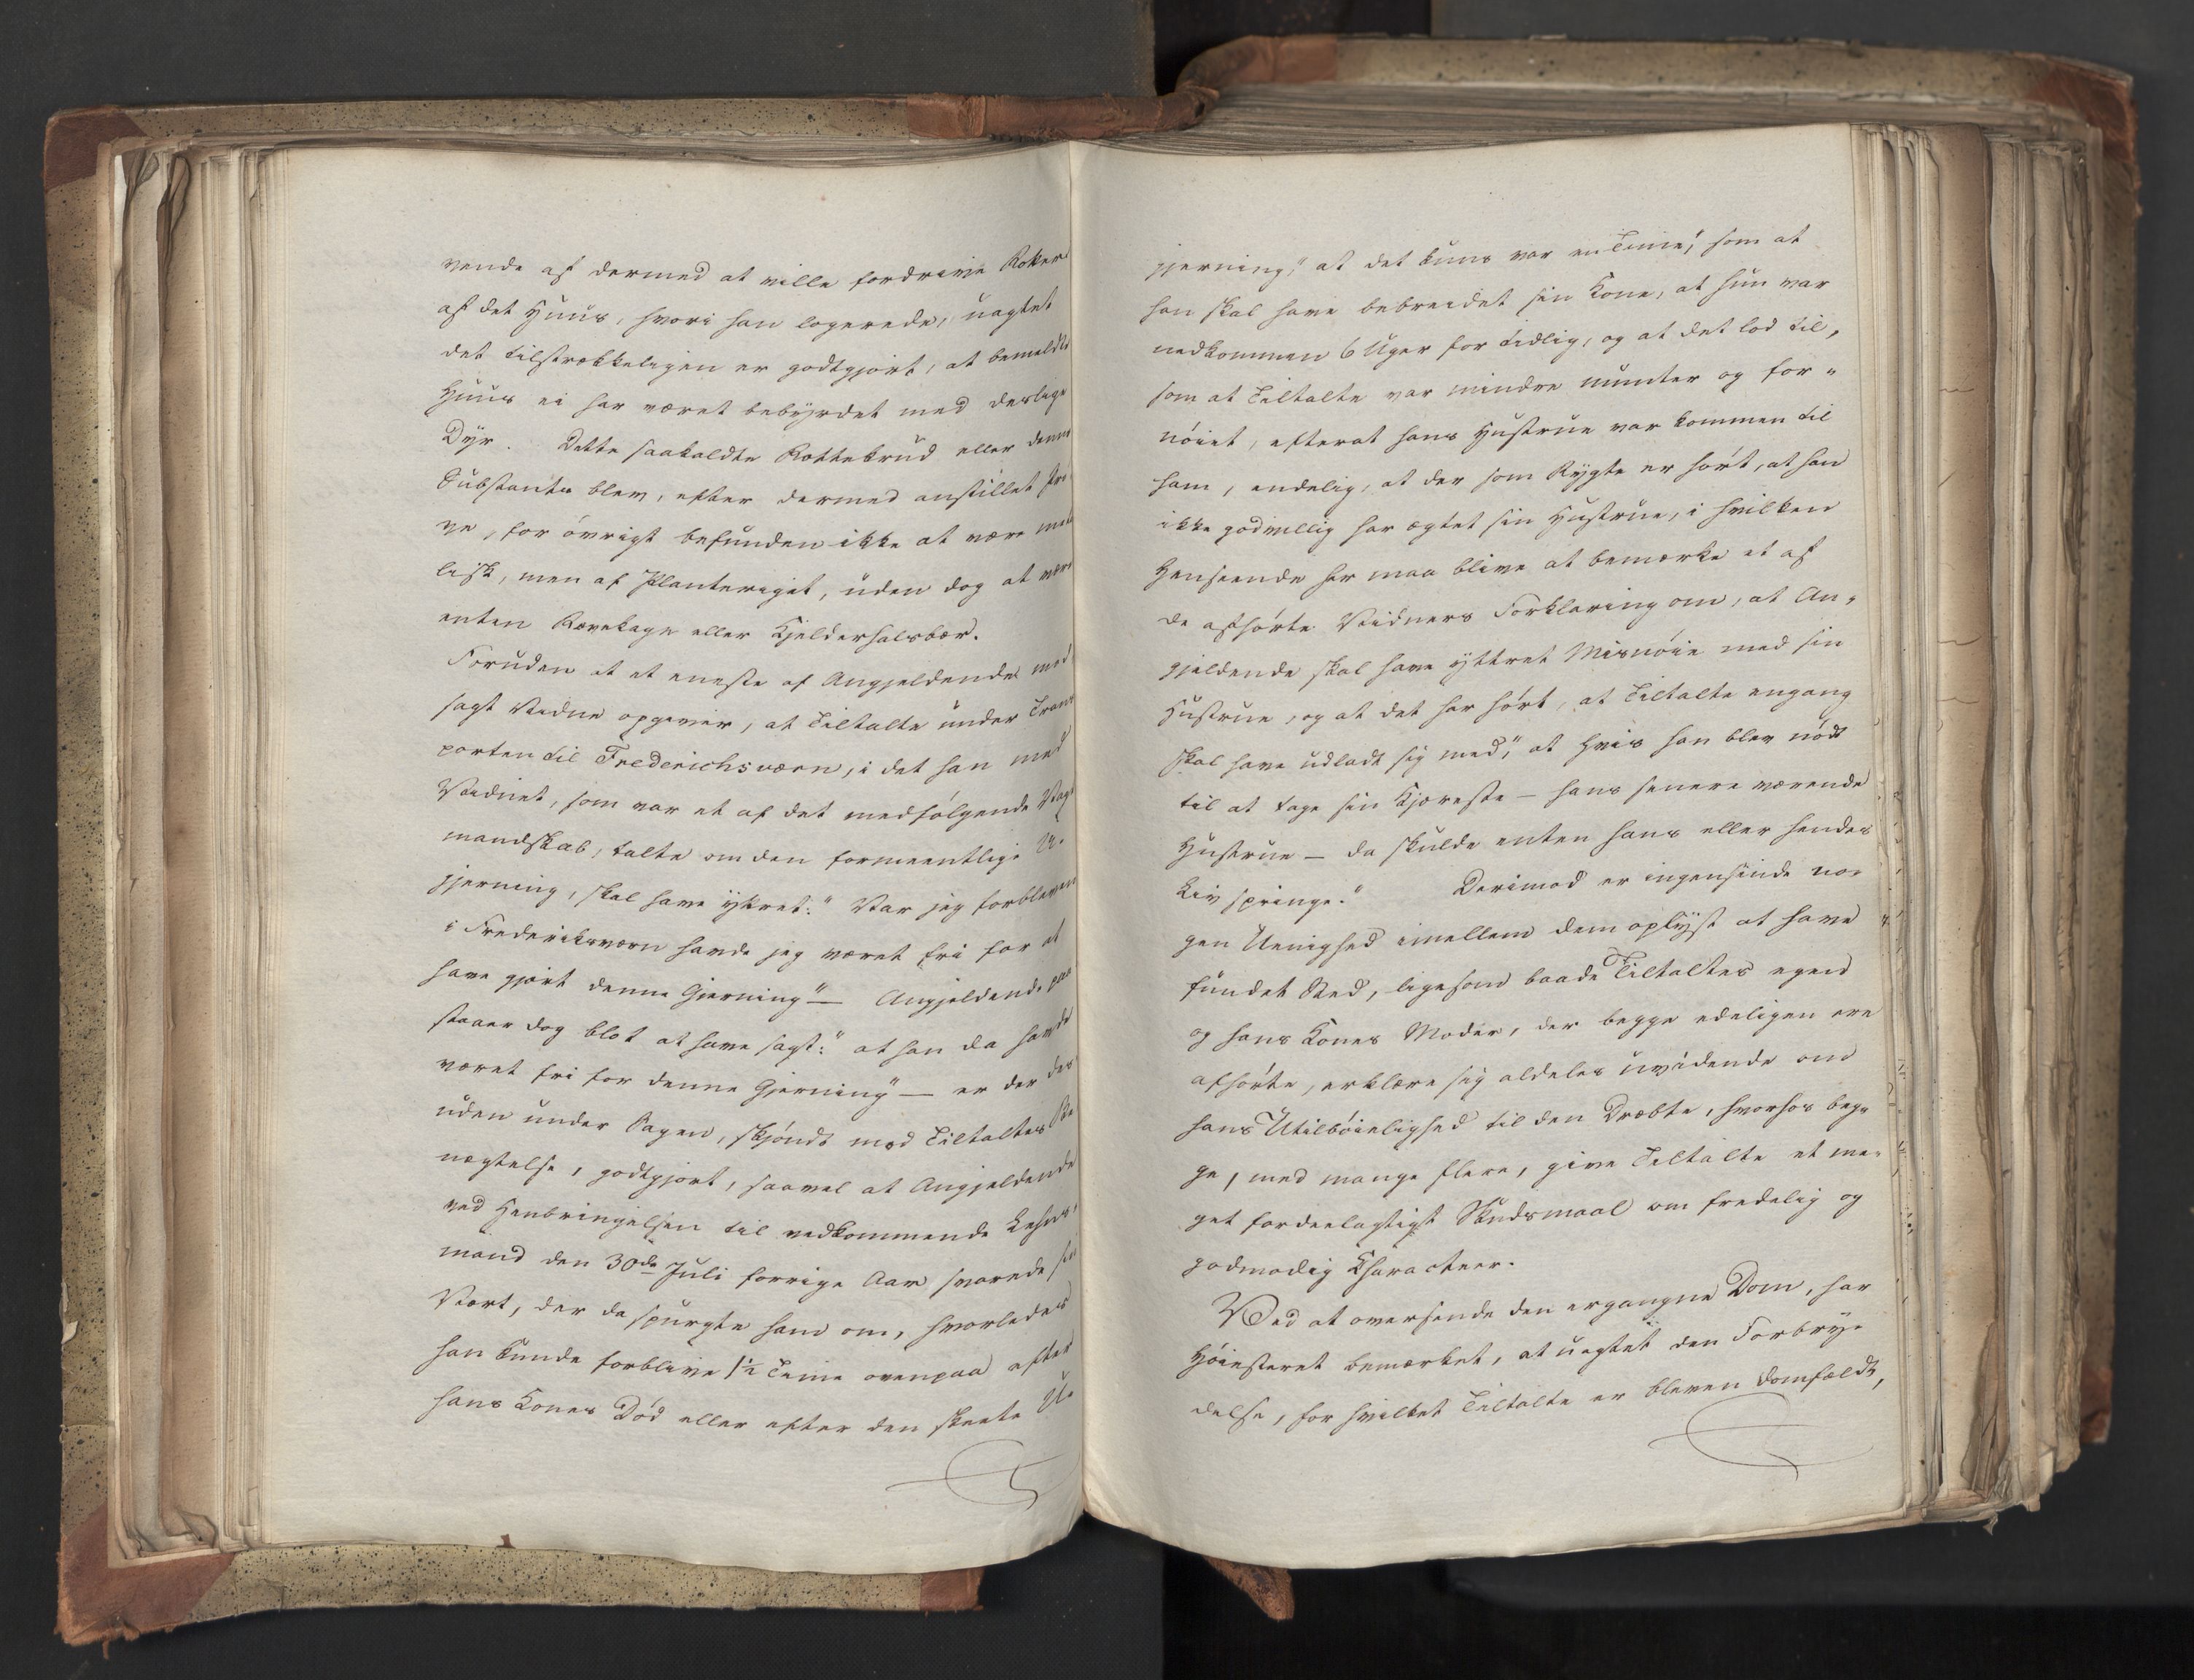 vende af dermed at ville fordrive Rotter
af det Huus, hvori han logerede, uagtet
det tilstrækkeligen er godtgjort, at bemeldte
Huus ei har været bebyrdet med deslige
Dyr. Dette saakaldte Rottekrud eller denne
Substants blev, efter dermed anstillet Prø
ve, for øvrigt befunden ikke at være metal
lisk, men af Planteriget, uden dog at være
enten Rævekage eller Kjelderhalsbær.
Foruden at et eneste af Angjeldende med
sagt Vidne opgiver, at Tiltalte under Trans
porten til Frederichsværn, i det han med
Vidnet, som var et af det medfølgende Vagt
mandskab, talte om den formeentlige U-
gjerning, skal have yttret: "Var jeg forbleven
i Frederiksværn havde jeg været fri for at
have gjort denne Gjerning" — Angjeldende paa
staaer dog blot at have sagt: "at han da havde
været fri for denne Gjerning" — er der des
uden under Sagen, skjøndt mod Tiltaltes Be
nægtelse, godtgjort, saavel at Angjeldende
ved Henbringelsen til vedkommende Lehns-
mand den 30de Juli forrige Aar svarede sin
Vært, der da spurgte ham om, hvorledes
han kunde forblive 1½ Time ovenpaa efter
hans Kones Død eller efter den skeete U-
gjerning, "at det kuns var en Time," som at
han skal have bebreidet sin Kone, at hun var
nedkommen 6 Uger for tidlig, og at det lod til,
som at Tiltalte var mindre munter og for-
nøiet, efterat hans Hustrue var kommen til
ham, endelig, at der som Rygte er hørt, at han
ikke godvillig har ægtet sin Hustrue, i hvilken
Henseende her maa blive at bemærke et af
de afhørte Vidners Forklaring om, at An-
gjeldende skal have yttret Misnøie med sin
Hustrue, og at det har hørt, at Tiltalte engang
skal have udladt sig med, "at hvis han blev nødt
til at tage sin Kjæreste — hans senere værende
Hustrue — da skulde enten hans eller hendes
Liv springe." Derimod er ingensinde no-
gen Uenighed imellem dem oplyst at have
fundet Sted, ligesom baade Tiltaltes egen
og hans Kones Moder, der begge edeligen ere
afhørte, erklære sig aldeles uvidende om
hans Utilbøielighed til den Dræbte, hvorhos beg-
ge, med mange flere, give Tiltalte et me-
get fordeelagtigt Skudsmaal om fredelig og
godmodig Characteer.
Ved at oversende den ergangne Dom, har
Høiesteret bemærket, at uagtet den Forbry-
delse, for hvilket Tiltalte er bleven domfældt,